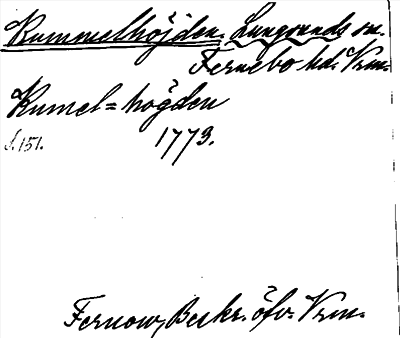 Rummelhöjden. Lungsunds sn.
Fernebo hd. Vrm.
Rumel=högden
s. 151. 1773.
Fernow, Beskr. öfv. Vrm.